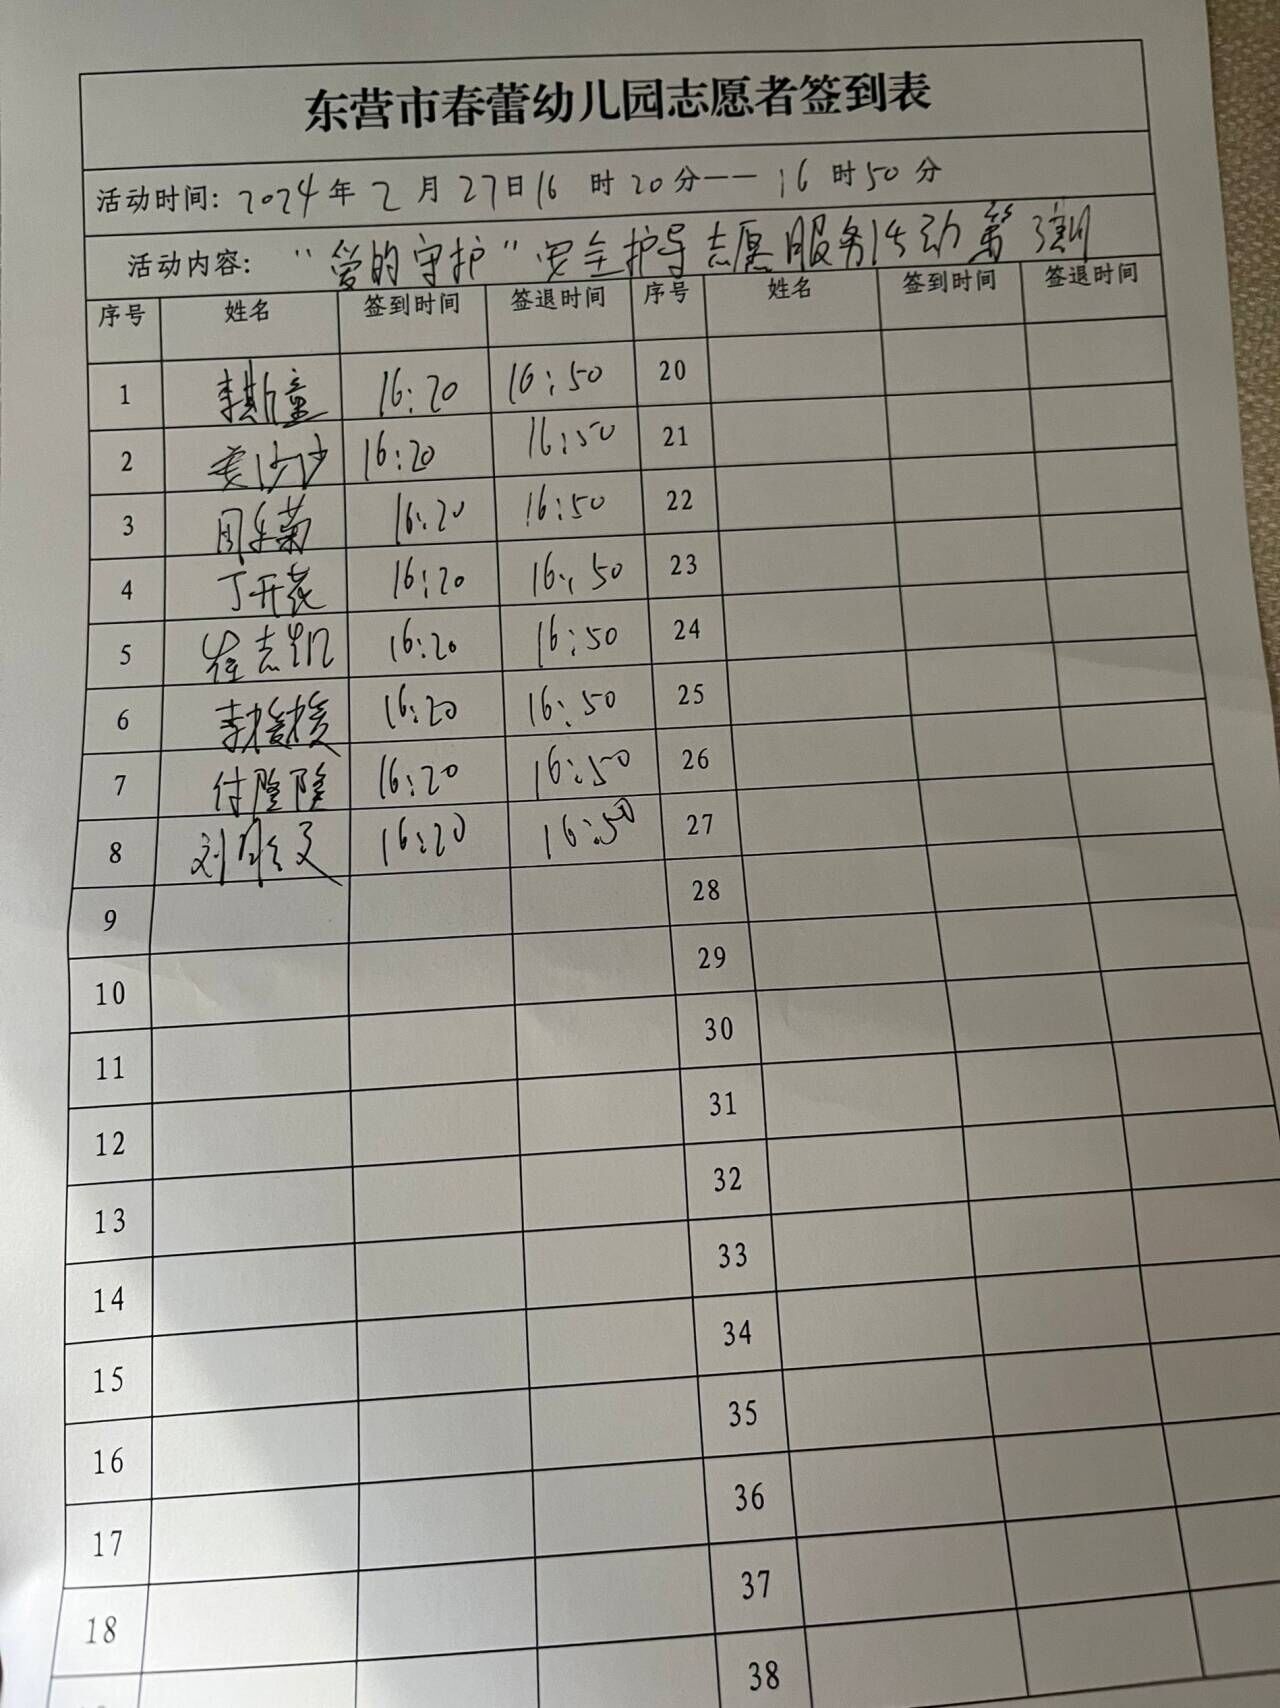 东营市春蕾幼儿园志愿者签到表
活动时间: 2024年2月27日16时20分——16时50分
活动内容: "爱的守护"安全护导志愿服务活动第
序号 姓名 签到时间 签退时间 序号 姓名 签到时间 签退时间
1 李斯童 16:20 16:50 20
2 娄沙沙 16:20 16:50 21
3 周冬菊 16:20 16:50 22
4 丁开花 16:20 16:50 23
5 崔志凯 16:20 16:50 24
6 李媛媛 16:20 16:50 25
7 付隆隆 16:20 16:50 26
8 刘文 16:20 16:50 27
9 28
10 29
11 30
12 31
13 32
14 33
15 34
16 35
17 36
18 37
38